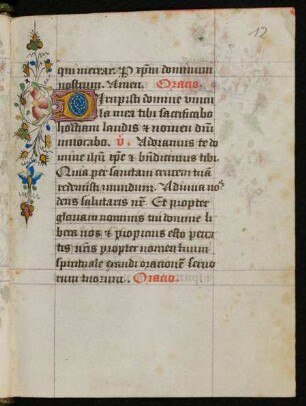 12
qui merear. P xp̄m dominum
nostrum. Amen. Oracio.
Dirupisti domine vincu
la mea tibi sacrificabo
hostiam laudis & nomen dn̄i
inuocabo. v̄. Adoramus te do
mine ih̄u xp̄e & bn̄dicimus tibi.
Quia per sanctam crucem tuā
redemisti mundum. Adiuua nos
deus salutaris nr̄. Et propter
gloriam nominis tui domine li
bera nos & propicius esto pecca
tis nr̄is propter nomen tuum
oracionē seruo
rum tuorum. Oracio.